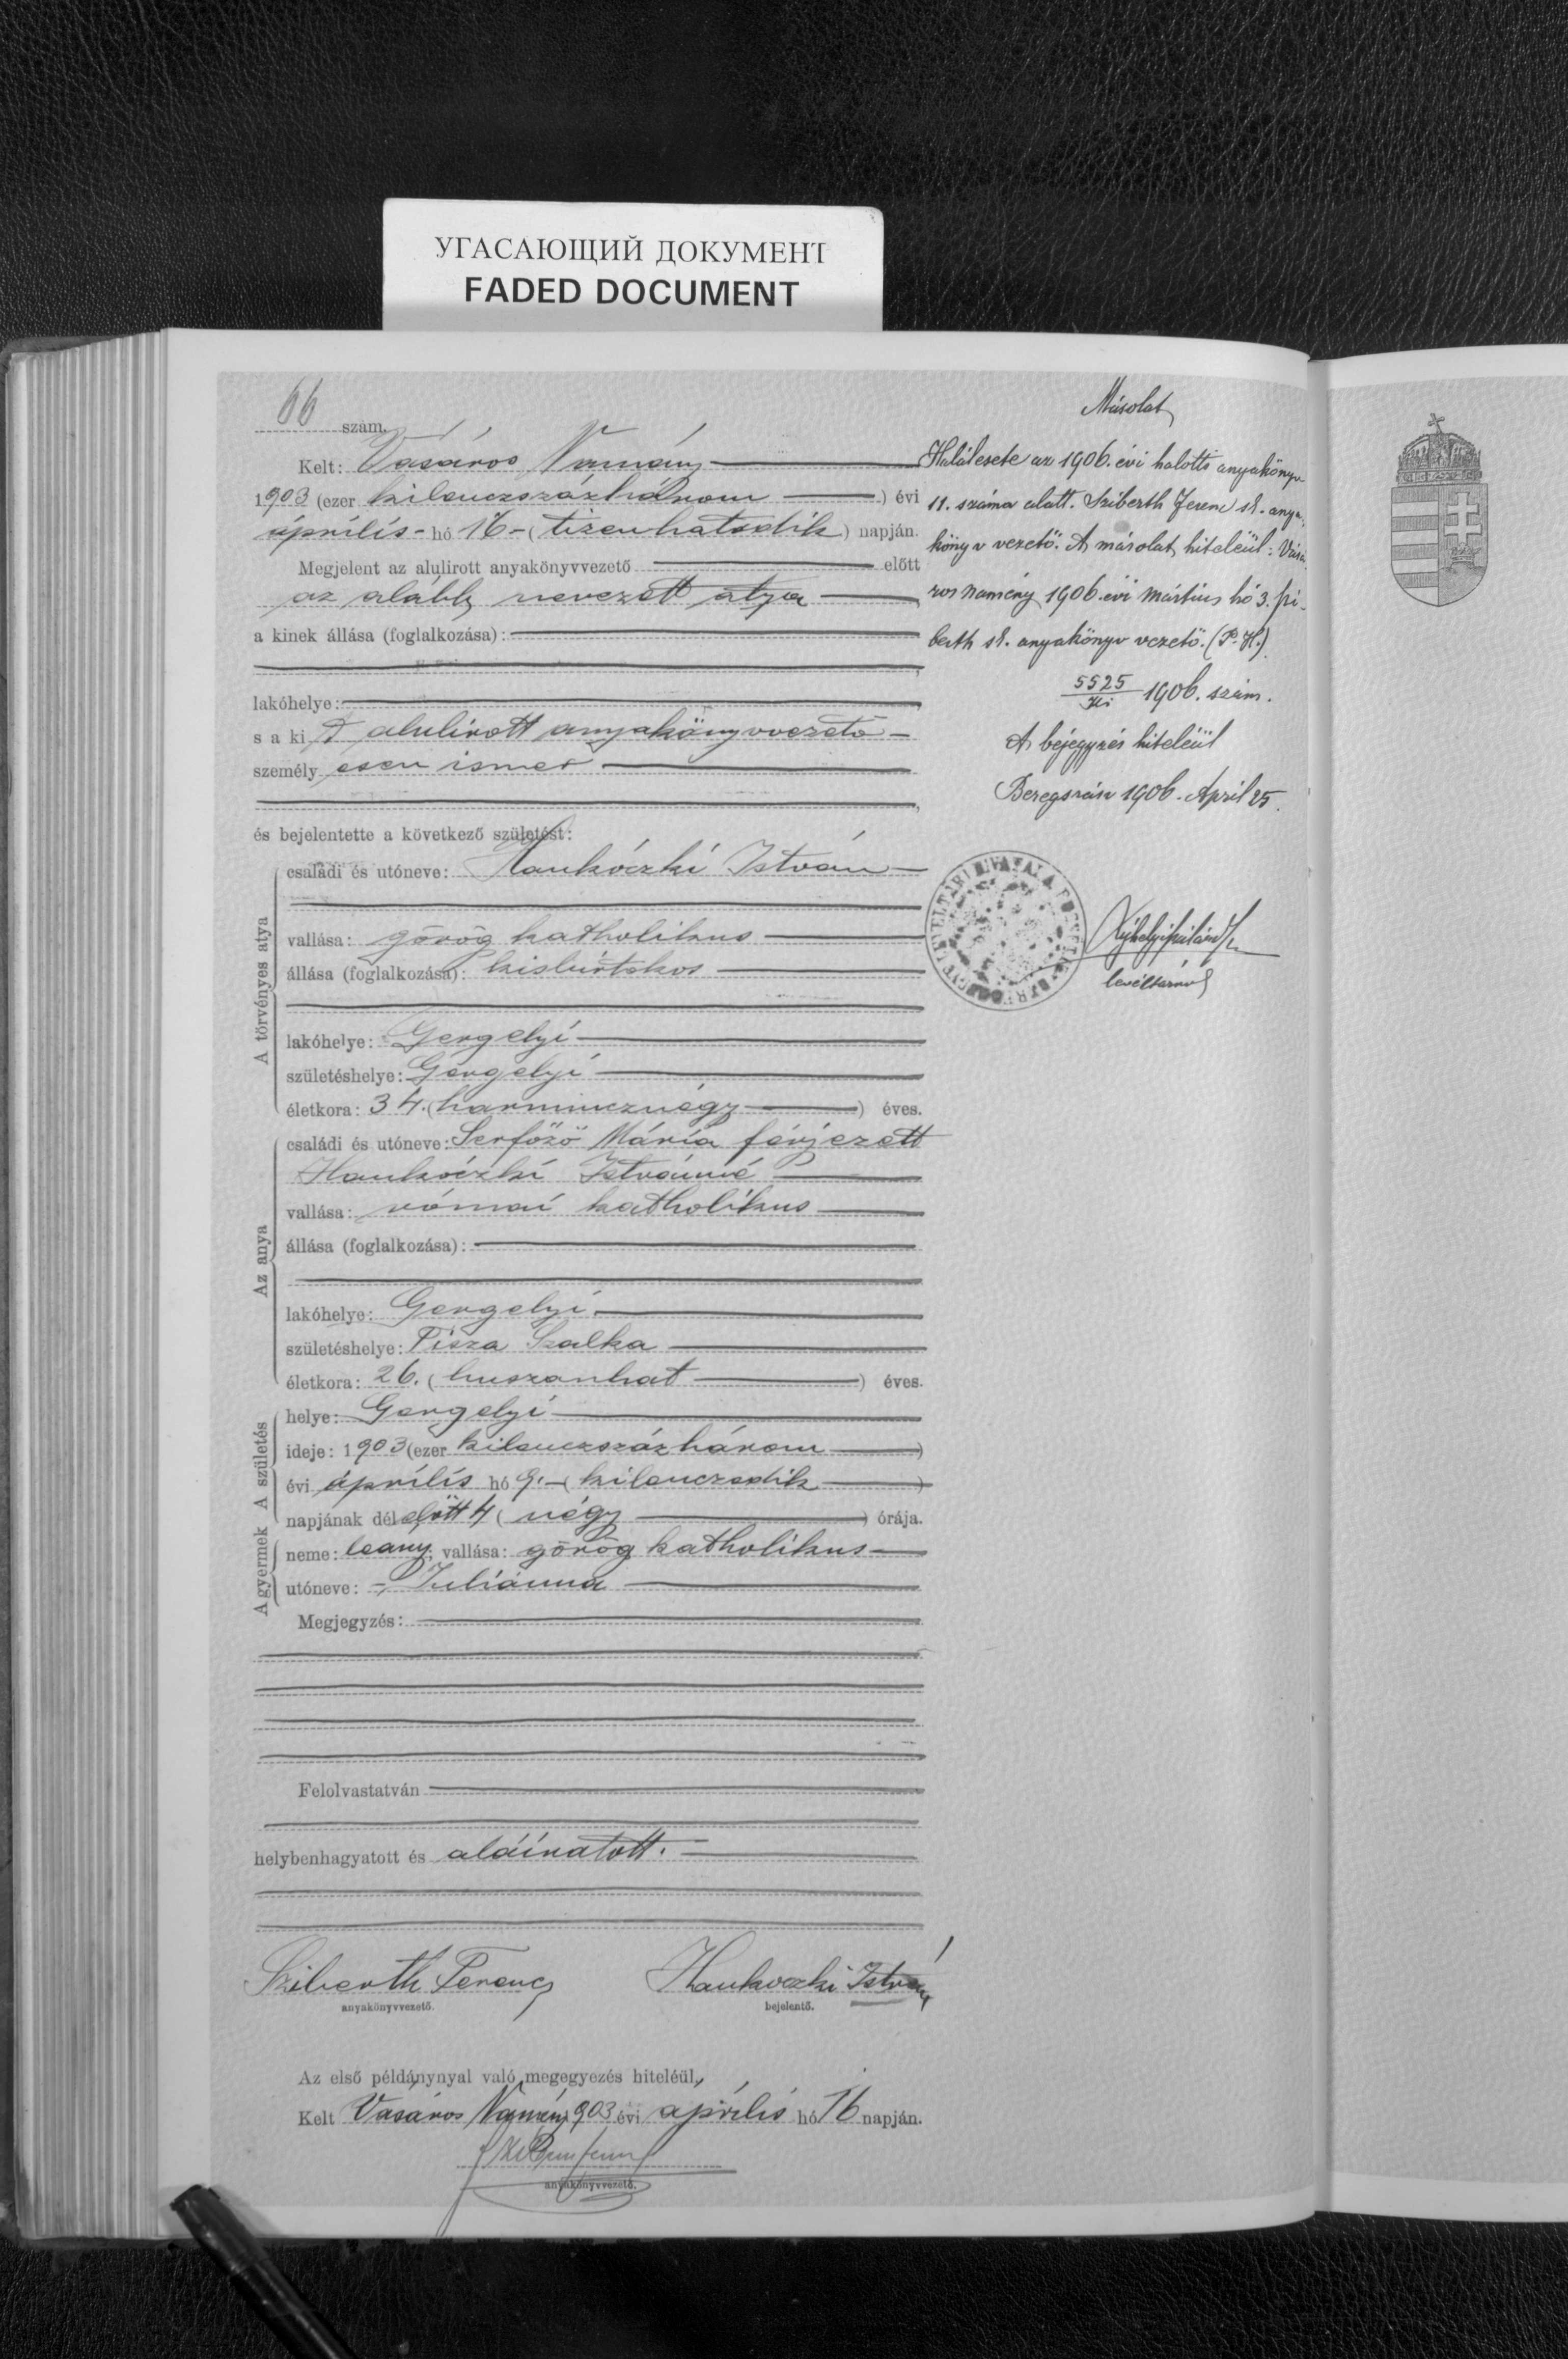 УГАСАЮЩИЙ ДОКУМЕНТ
FADED DOCUMENT
66 szám.
Kelt: Vásáros Namény
1903 (ezer kilenczszázhárom) évi
április - hó 16 - (tizenhatodik) napján.
Megjelent az alulirott anyakönyvvezető előtt
az alább nevezett atya
a kinek állása (foglalkozása):
lakóhelye:
s a ki t alulírott anyakönyvvezető -
személy esen ismer
és bejelentette a következő születést:
A törvényes atya
családi és utóneve: Hankóczki István
vallása: görög katholikus
állása (foglalkozása): kisbirtokos
lakóhelye: Gergelyi
születéshelye: Gergelyi
életkora: 34. (harmincznégy) éves.
Az anya
családi és utóneve: Serfőző Mária férjezett
Hankóczki Istvánné
vallása: római katholikus
állása (foglalkozása):
lakóhelye: Gergelyi
születéshelye: Tisza Szalka
életkora: 26. (huszonhat) éves.
A születés
helye: Gergelyi
ideje: 1903 (ezer kilenczszázhárom)
évi április hó 9. - (kilenczedik)
napjának dél előtt 4 (négy) órája.
A gyermek
neme: leany, vallása: görög katholikus
utóneve: - Juliánna
Megjegyzés:
Felolvastatván
helybenhagyatott és aláíratott.
Sziberth Ferencz
anyakönyvvezető.
Hankoczki István
bejelentő.
Az első példánynyal való megegyezés hiteléül,
Kelt Vasáros Namény 903 évi április hó 16 napján.
anyakönyvvezető.
Másolat
Halálesete az 1906. évi halotti anyakönyv
11. száma alatt. Sziberth Ferenc sk. anya-
könyv vezető. A másolat hiteleül: Vásá-
ros namény 1906. évi Mártius hó 3. Szi-
berth sk. anyakönyv vezető. (P. H.)
5525
Ki 1906. szám.
A bejegyzés hiteleül
Beregszász 1906. April 25.
levéltárnok